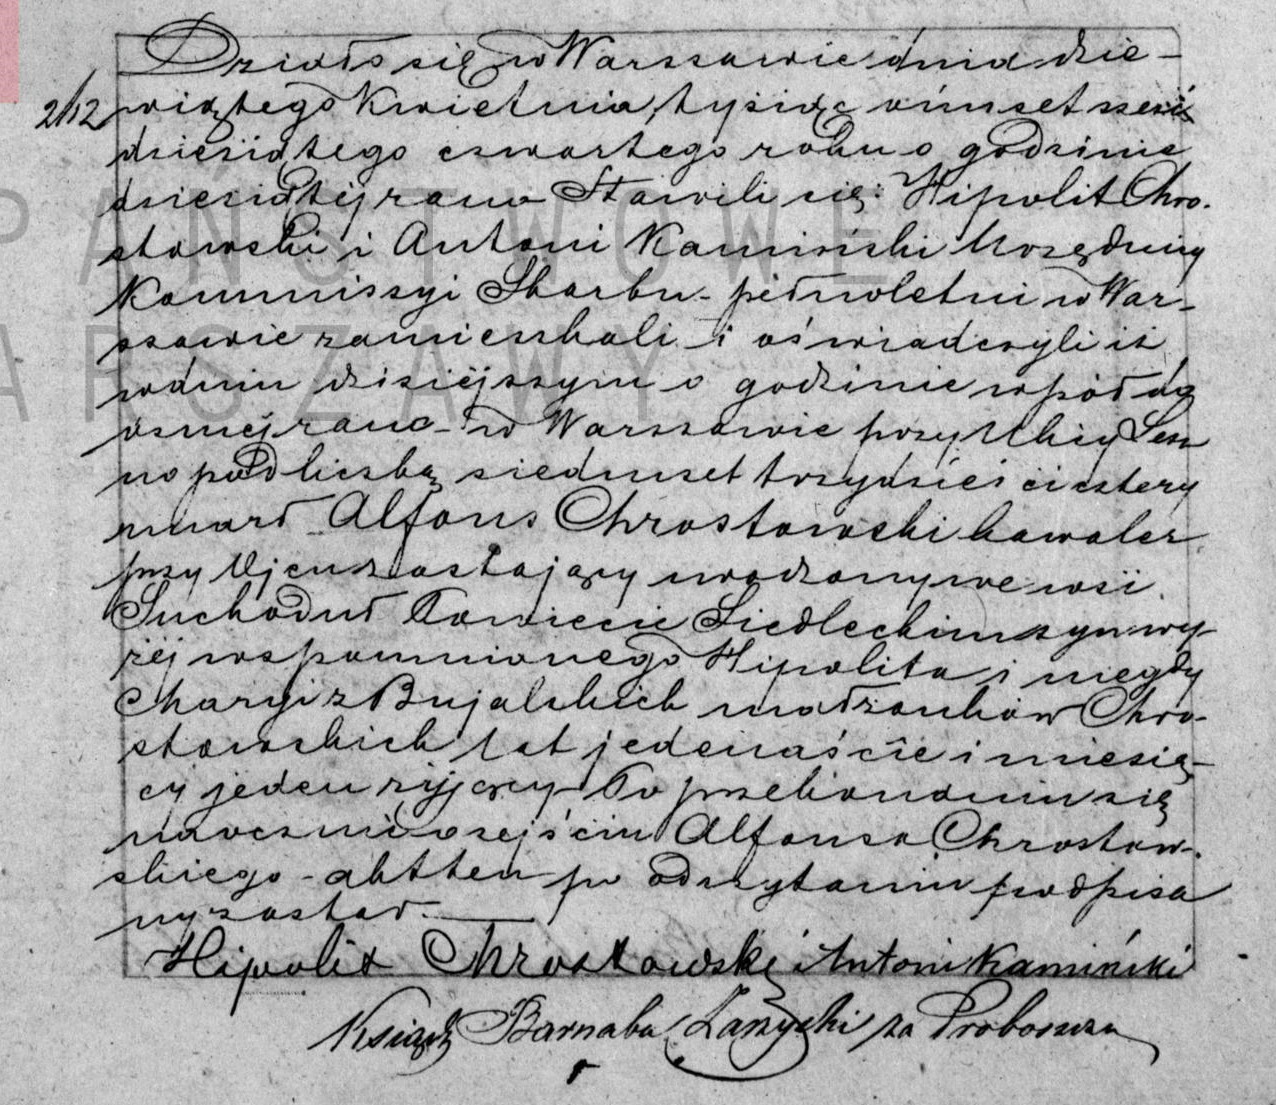 Działo się w Warszawie dnia dzie-
2/12 wiątego Kwietnia, tysiąc ośmset sześć
dziesiątego czwartego roku o godzinie
dziesiątéj rano Stawili się: Hipolit Chro-
stowski i Antoni Kamiński Urzędnicy
Kommissyi Skarbu - pełnoletni w War-
szawie zamieszkali - i oświadczyli iż
w dniu dzisiéjszym o godzinie wpół do
osméj rano - w Warszawie przy Ulicy Lesz
no pod liczbą siedmset trzydzieści cztery
umarł Alfons Chrostowski kawaler
przy Ojcu zostający urodzony we wsi
Suchoduł Powiecie Siedleckim syn wy-
żéj wspomnionego Hipolita i niegdy
Maryi z Bujalskich małżonków Chro-
stowskich lat jedenaście i miesię-
cy jeden żyjący - Po przekonaniu się
naocznie o zejściu Alfonsa Chrostow-
skiego - akt ten po odczytaniu podpisa
ny został.
Hipolit Chrostowski Antoni Kamiński
Ksiądz Barnaba za Proboszcza
PAŃSTWOWE
WARSZAWY